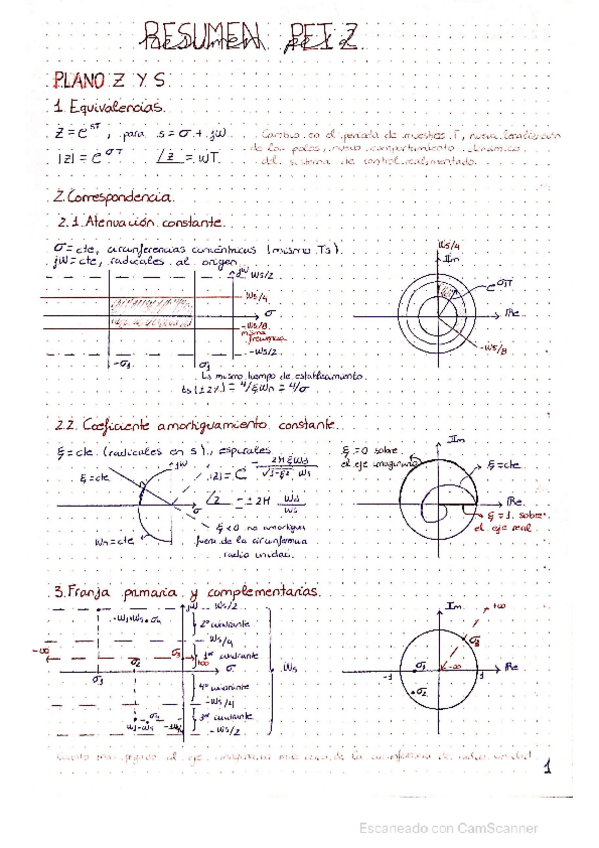 RESUMEN PEI 2
PLANO Z Y S
1. Equivalencias.
Z = e^sT, para s = σ + jω
Cambio en el periodo de muestreo T, nueva localización
|z| = e^σT ∠z = ωT.
de los polos, nuevo comportamiento dinámico
del sistema de control realimentado.
2. Correspondencia.
2.1. Atenuación constante.
σ = cte, circunferencias concéntricas (mismo Ts).
jω = cte, radicales al origen
jω ωs/2
ωs/4
σ
-ωs/8
misma
frecuencia
-ωs/2
-σ1 σ1
Ls mismo tiempo de establecimiento
ts(±2%) = 4/ξωn = 4/σ
ωs/4
Im
e^σT
Re
-ωs/8
2.2. Coeficiente amortiguamiento constante.
ξ = cte (radicales en s), espirales
ξ = cte
jω
|z| = e^ -2π ξ ωd / √1-ξ² ωs
σ
∠z = ±2π ωd/ωs
ωn = cte
ξ < 0 no amortigua
fuera de la circunferencia
radio unidad.
ξ = 0 sobre
el eje imaginario
Im
ξ = cte
Re
ξ = 1 sobre
el eje real
3. Franja primaria y complementarias.
jω ωs/2
2º cuadrante
ωs/4
-∞ σ2 σ3 +∞ 1er cuadrante
σ1 σ ωs
4º cuadrante
-ωs/4
3er cuadrante
-ωs/2
Im +∞
σ3
σ1 -∞ Re
-1 1
σ2
1
Escaneado con CamScanner